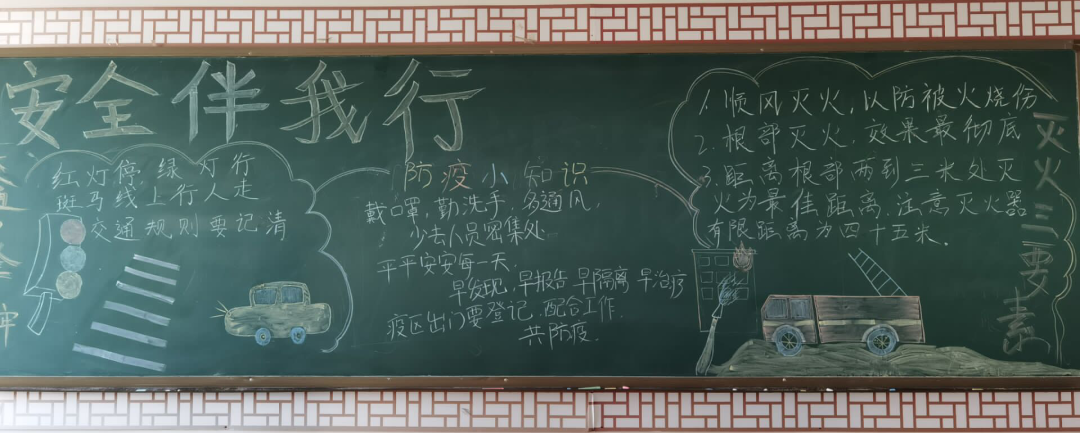 安全伴我行
红灯停绿灯行
斑马线上行人走
交通规则要记清
防疫小知识
戴口罩,勤洗手,多通风,
少去人员密集处
平平安安每一天.
早发现,早报告 早隔离 早治疗
疫区出门要登记.配合工作.
共防疫.
灭火三要素
1.顺风灭火,以防被火烧伤
2.根部灭火.效果最彻底
3.距离根部两到三米处灭
火为最佳距离.注意灭火器
有限距离为四十五米.